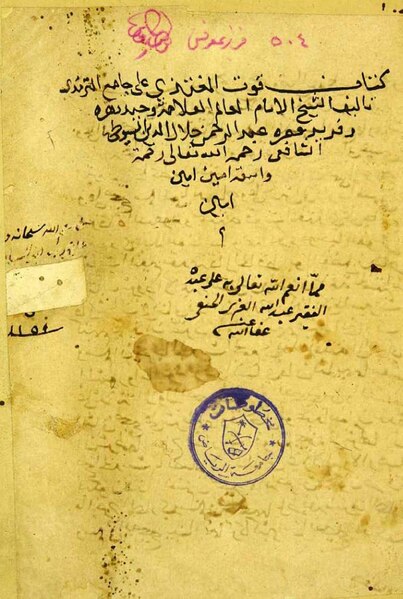 ٥٠٤
كتاب قوت المغتذي على جامع الترمذي
تاليف الشيخ الامام العالم العلامة وحيد دهره
وفريد عصره عبد الرحمن جلال الدين السيوطي
الشافعي رحمه الله تعالى رحمة
واسعة امين امين
امين
م
مما انعم الله تعالى به على عبده
الفقير عبد الله
عفا الله عنه
الله سبحانه و
مخطوطات
جامعة الرياض